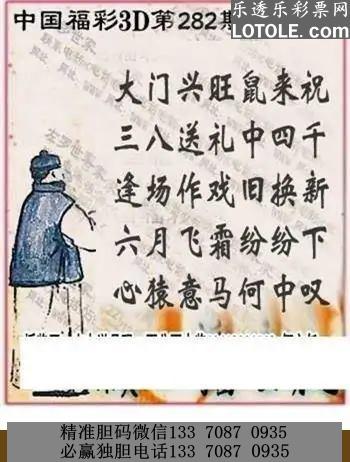 乐透乐彩票网
LOTOLE.COM
中国福彩3D第282期
大门兴旺鼠来祝
三八送礼中四千
逢场作戏旧换新
六月飞霜纷纷下
心猿意马何中叹
精准胆码微信133 7087 0935
必赢独胆电话133 7087 0935